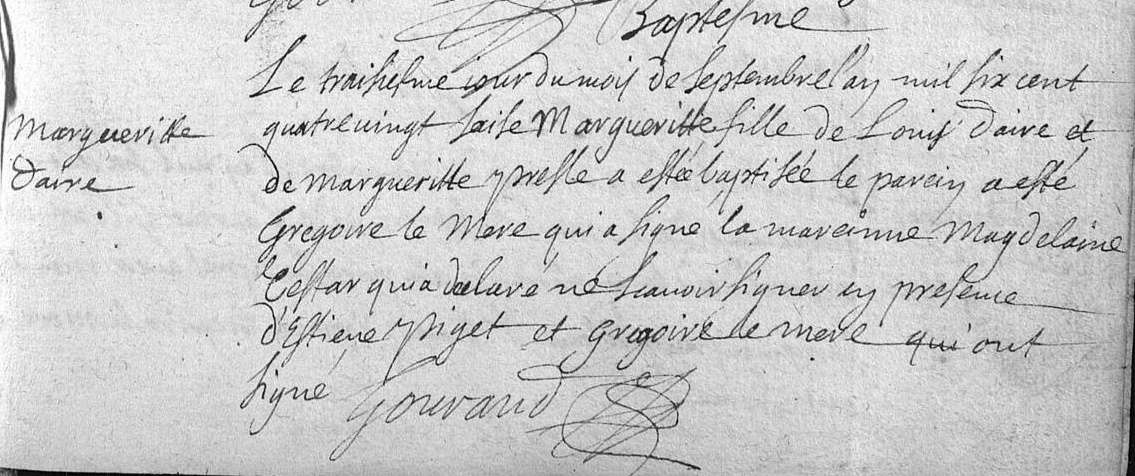 Baptesme
Le traisiesme iour du mois de septembre l'an mil six cent
Margueritte
quatre vingt saise Margueritte fille de Louis daire et
daire
de margueritte presle a estée baptisée le parein a esté
Gregoire le Mere qui a signe la mareinne Magdelaine
Testar qui a declaré ne scauoir signer en presence
d'Estiene piget et gregoire le mere qui ont
signe Gouraud